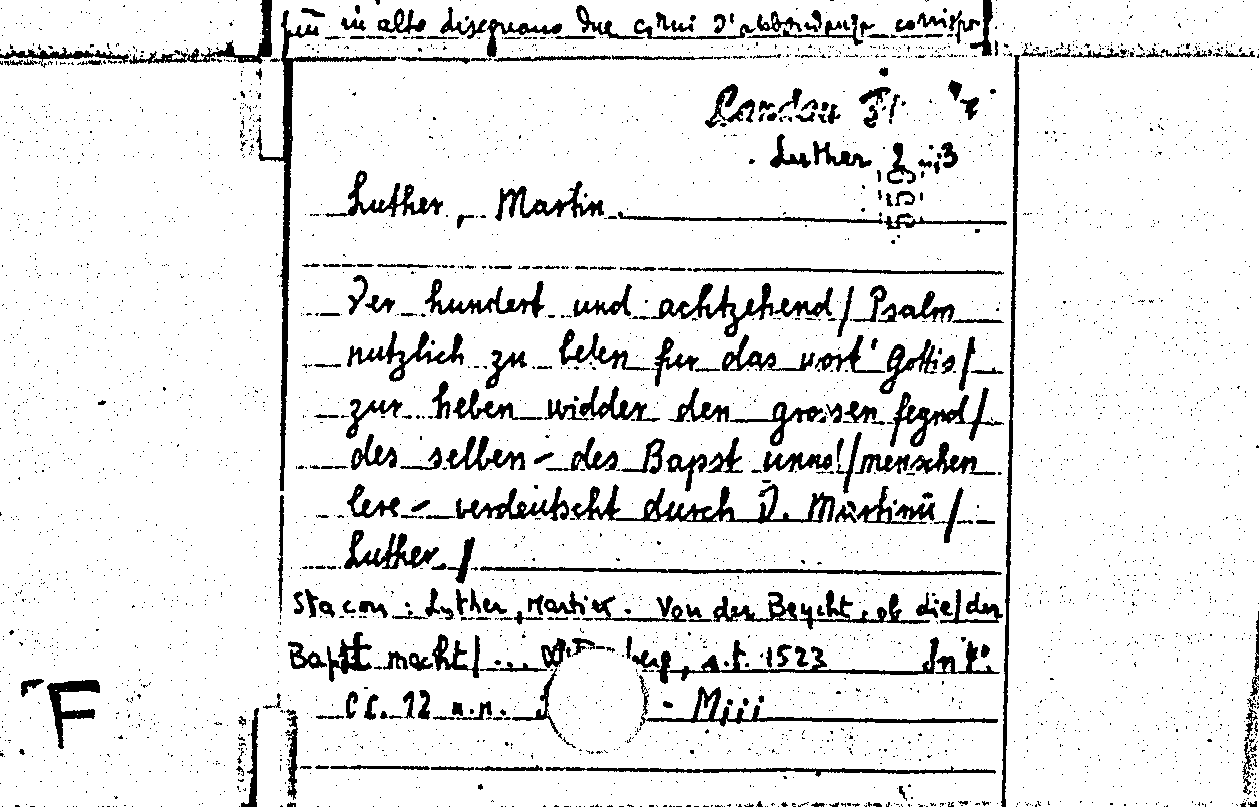 in alto disegnano due
Luther 2
Luther, Martin.
Der hundert und achtzehend/ Psalm
nutzlich zu beten fur das wort' Gottis/
zur heben widder den grossen feynd/
des selben - des Bapst unnd/menschen
lere - verdeutscht durch D. Martinū/
Luther./
Sta con: Luther, Martin. Von der Beycht, ob die/der
Bapst macht/ ... berg, s.t. 1523 In 4º.
cc. 12 n.n. - Miii
F